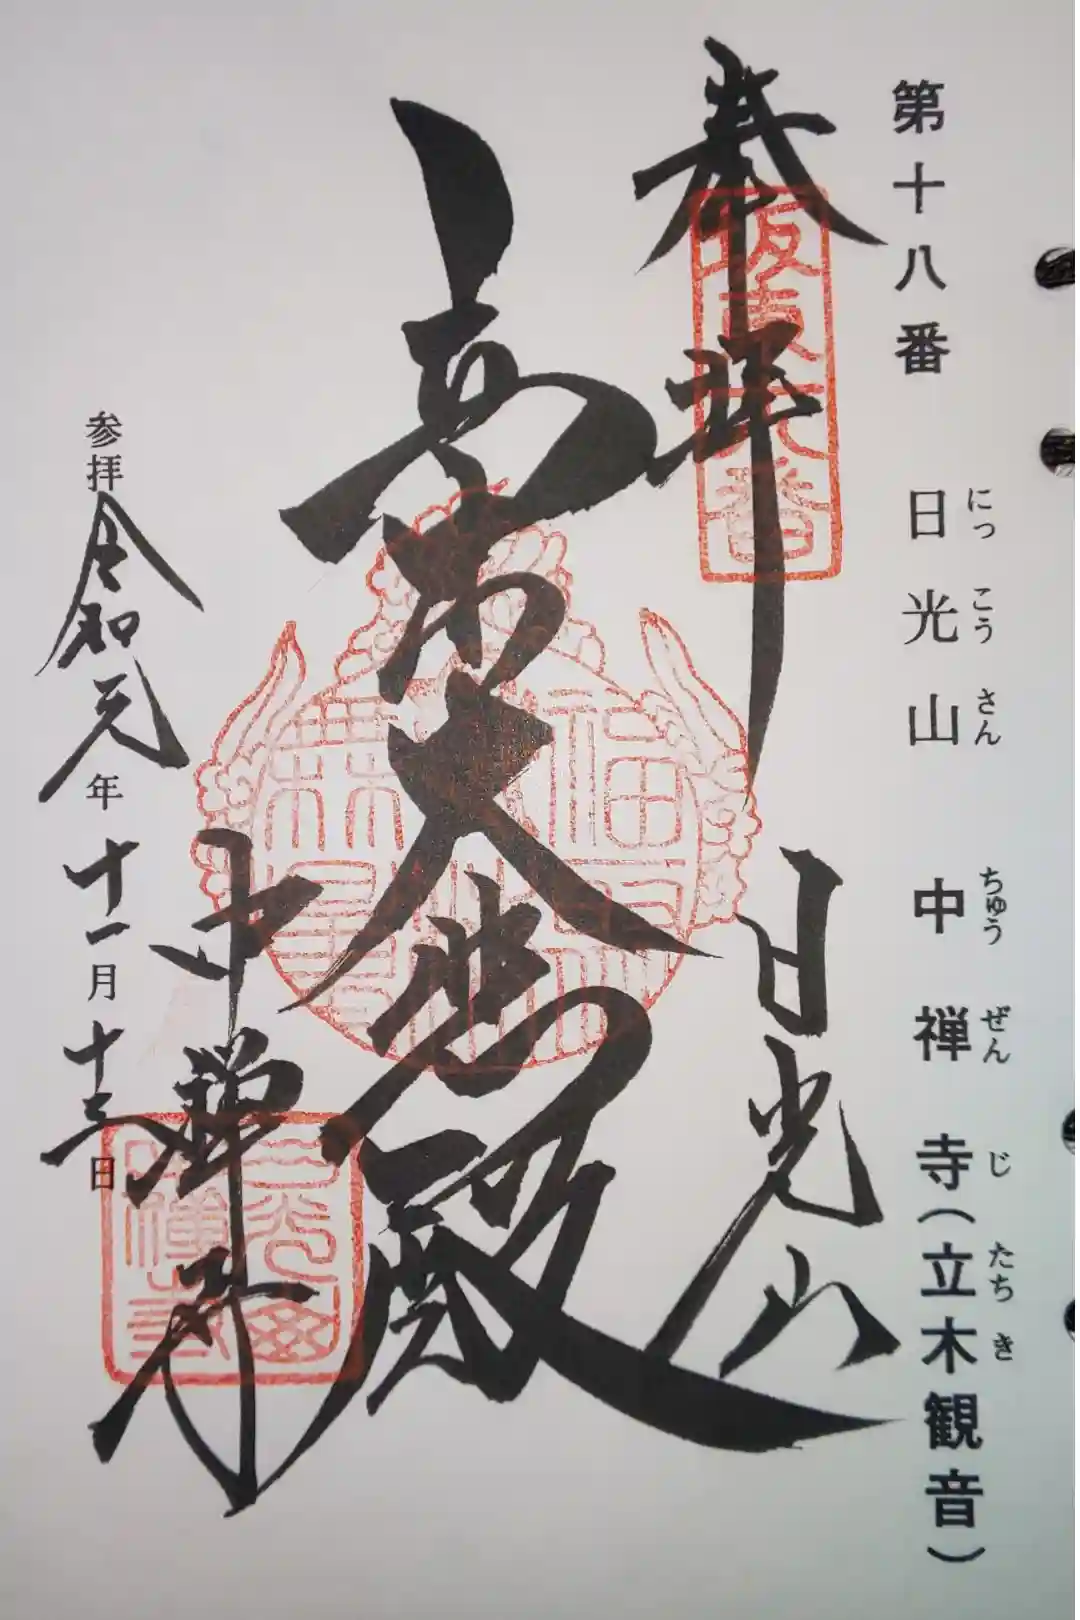 第十八番 日光山 中禅寺(立木観音)
にっこうさん ちゅうぜんじ たちき
奉拝
坂東十八番
日光山
大悲殿
中禅寺
参拝 令和元年十一月十三日